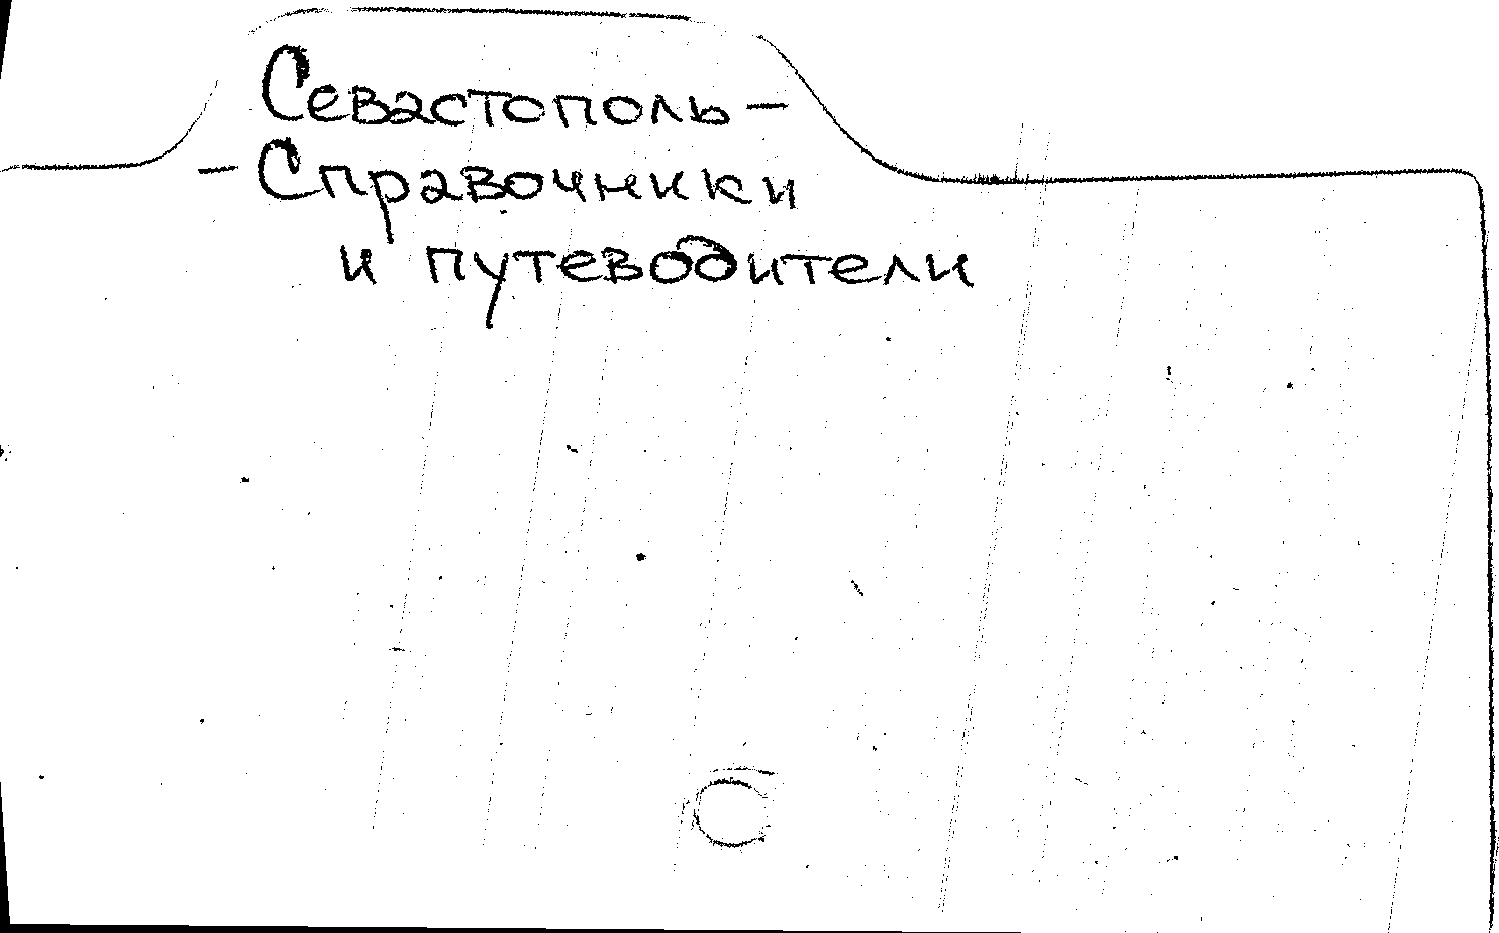 Севастополь –
– Справочники
и путеводители